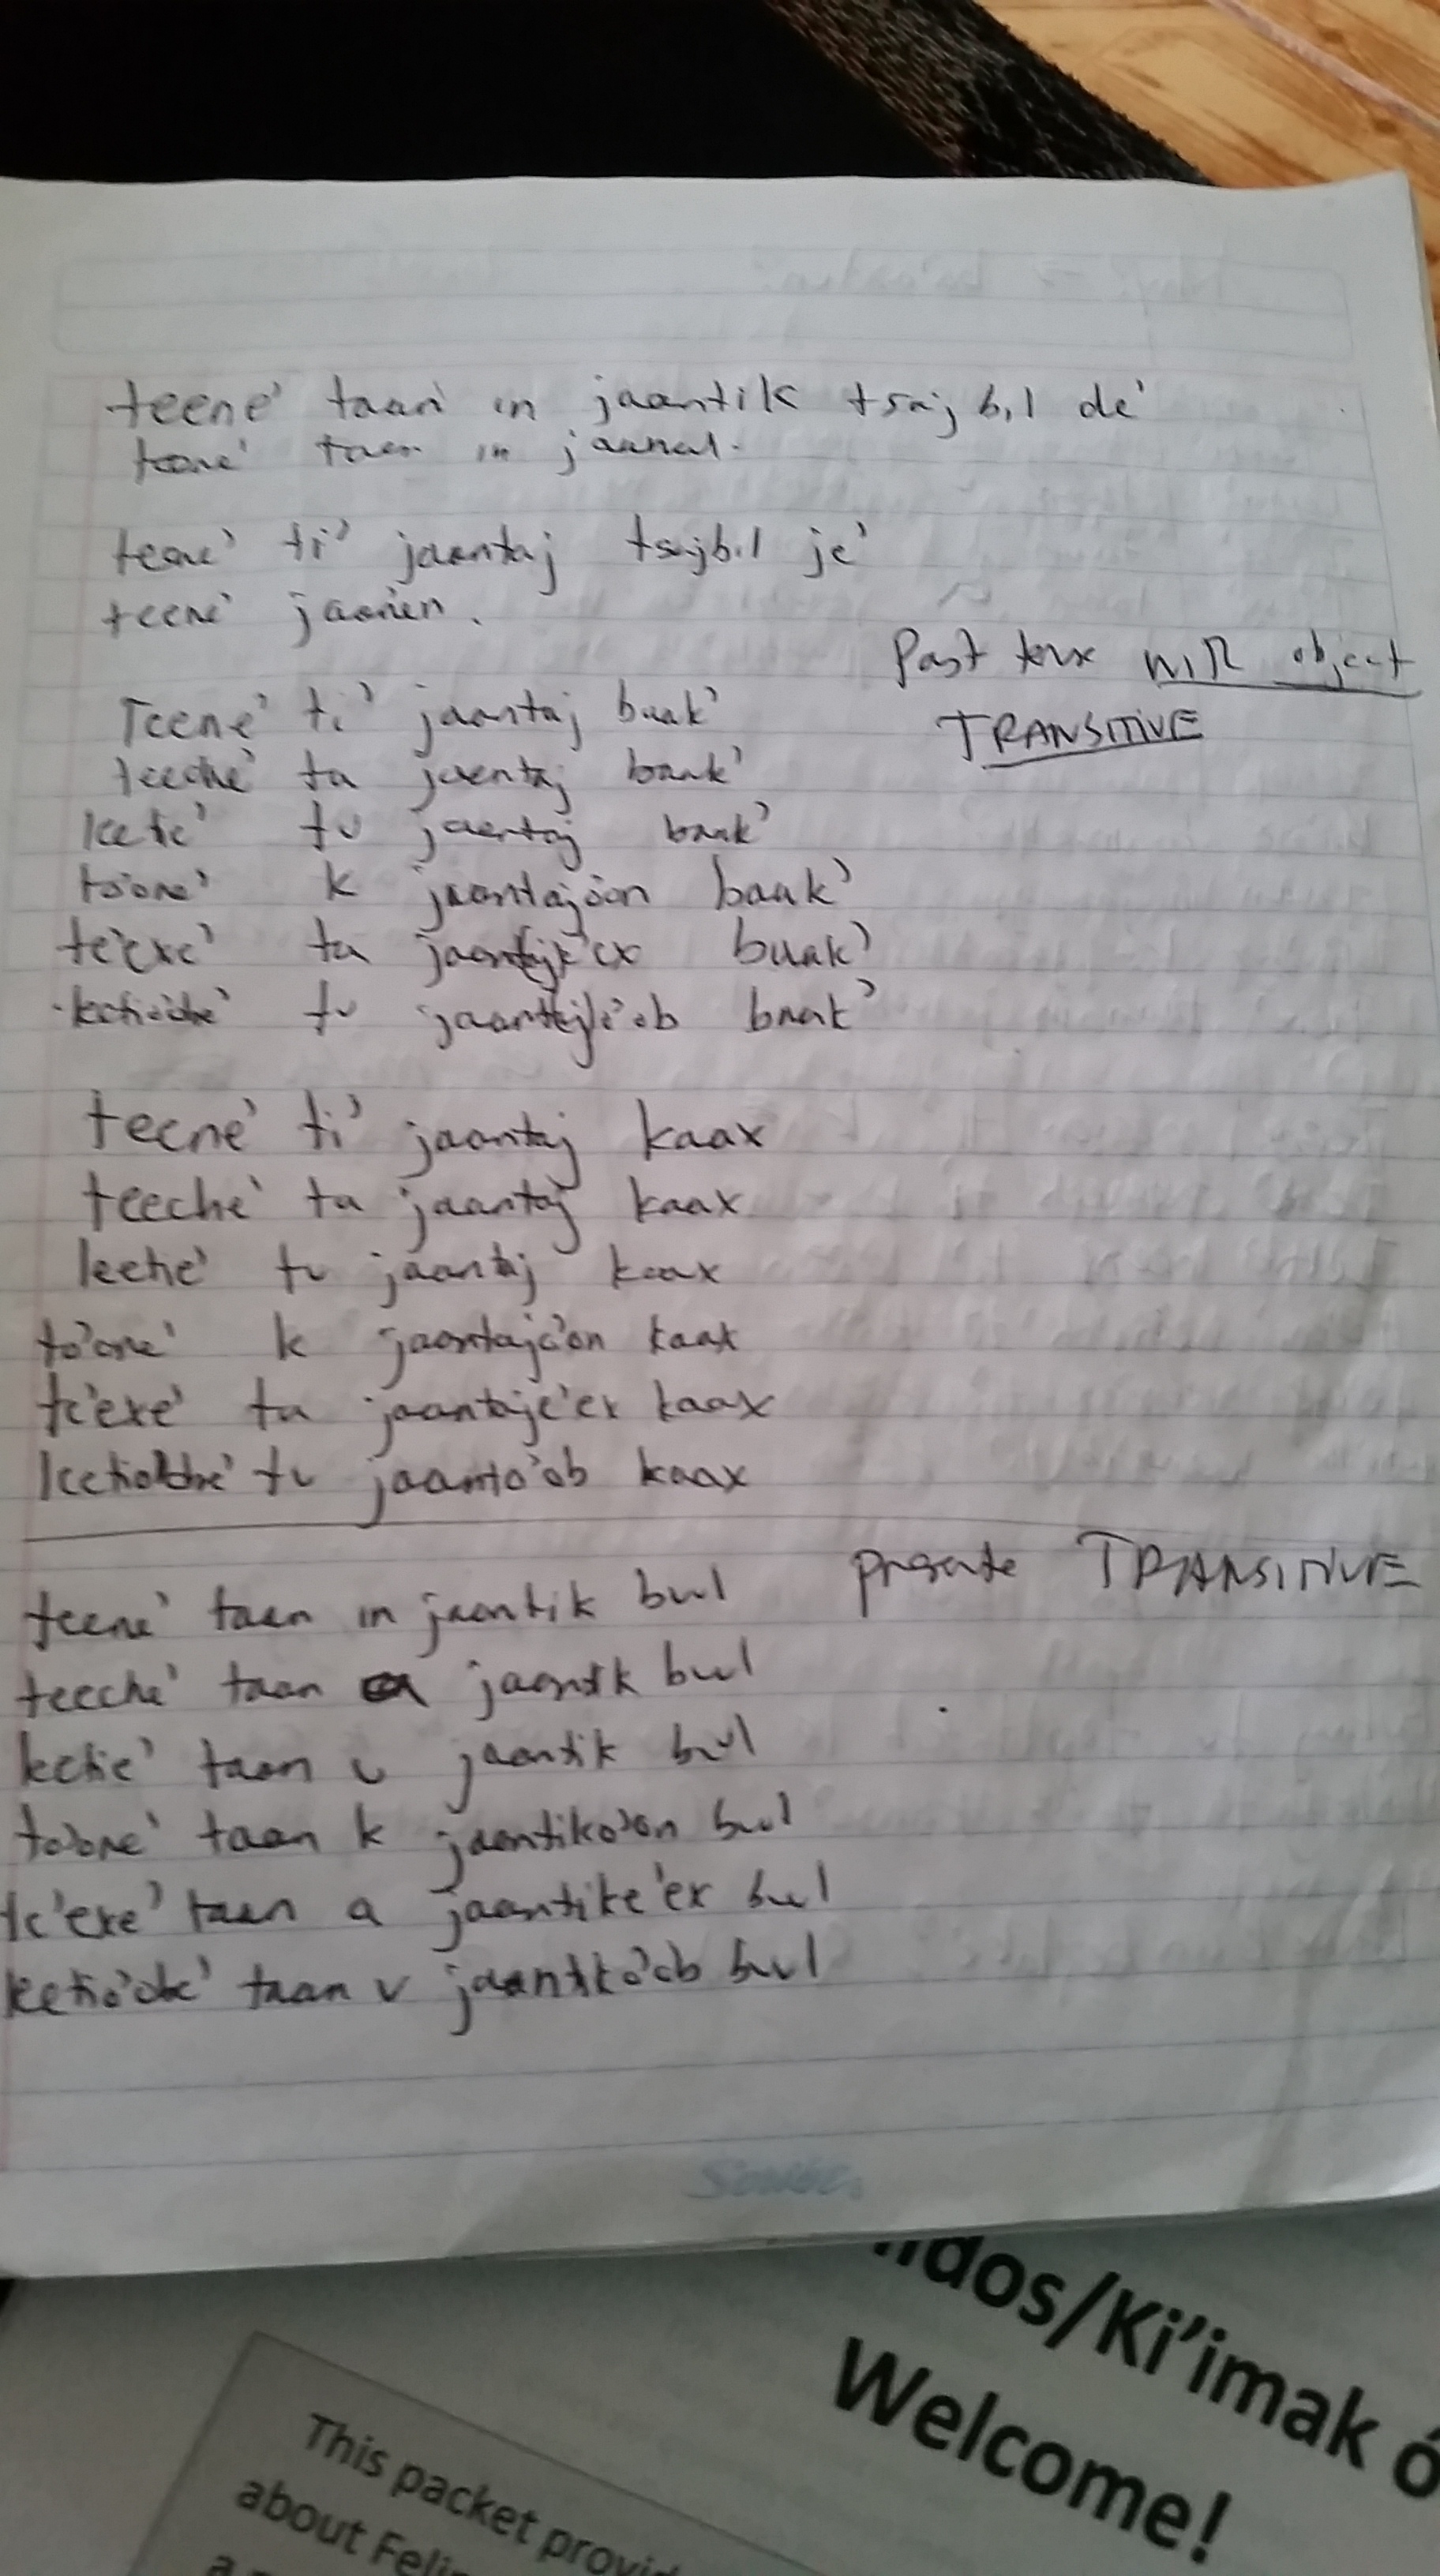 teene' taan in jaantik tsajbil de'
teene' taan in jaanal.
teene' ti' jaantaj tsajbil je'
teene' jaanen.
Past tense with object
TRANSITIVE
Teene' ti' jaantaj baak'
teeche' ta jaantaj baak'
leetie' tu jaantaj baak'
to'one' k jaantajo'on baak'
te'exe' ta jaantaj e'ex baak'
letio'obe' tu jaantaj o'ob baak'
teene' ti' jaantaj kaax
teeche' ta jaantaj kaax
leetie' tu jaantaj kaax
to'one' k jaantajo'on kaax
te'exe' ta jaantaje'ex kaax
leetio'obe' tu jaanto'ob kaax
presente TRANSITIVE
teene' taan in jaantik buul
teeche' taan a jaantik buul
leetie' taan u jaantik buul
to'one' taan k jaantiko'on buul
te'exe' taan a jaantike'ex buul
letio'obe' taan u jaantiko'ob buul
Scribe
ndos/Ki'imak ó
Welcome!
This packet provid
about Felip